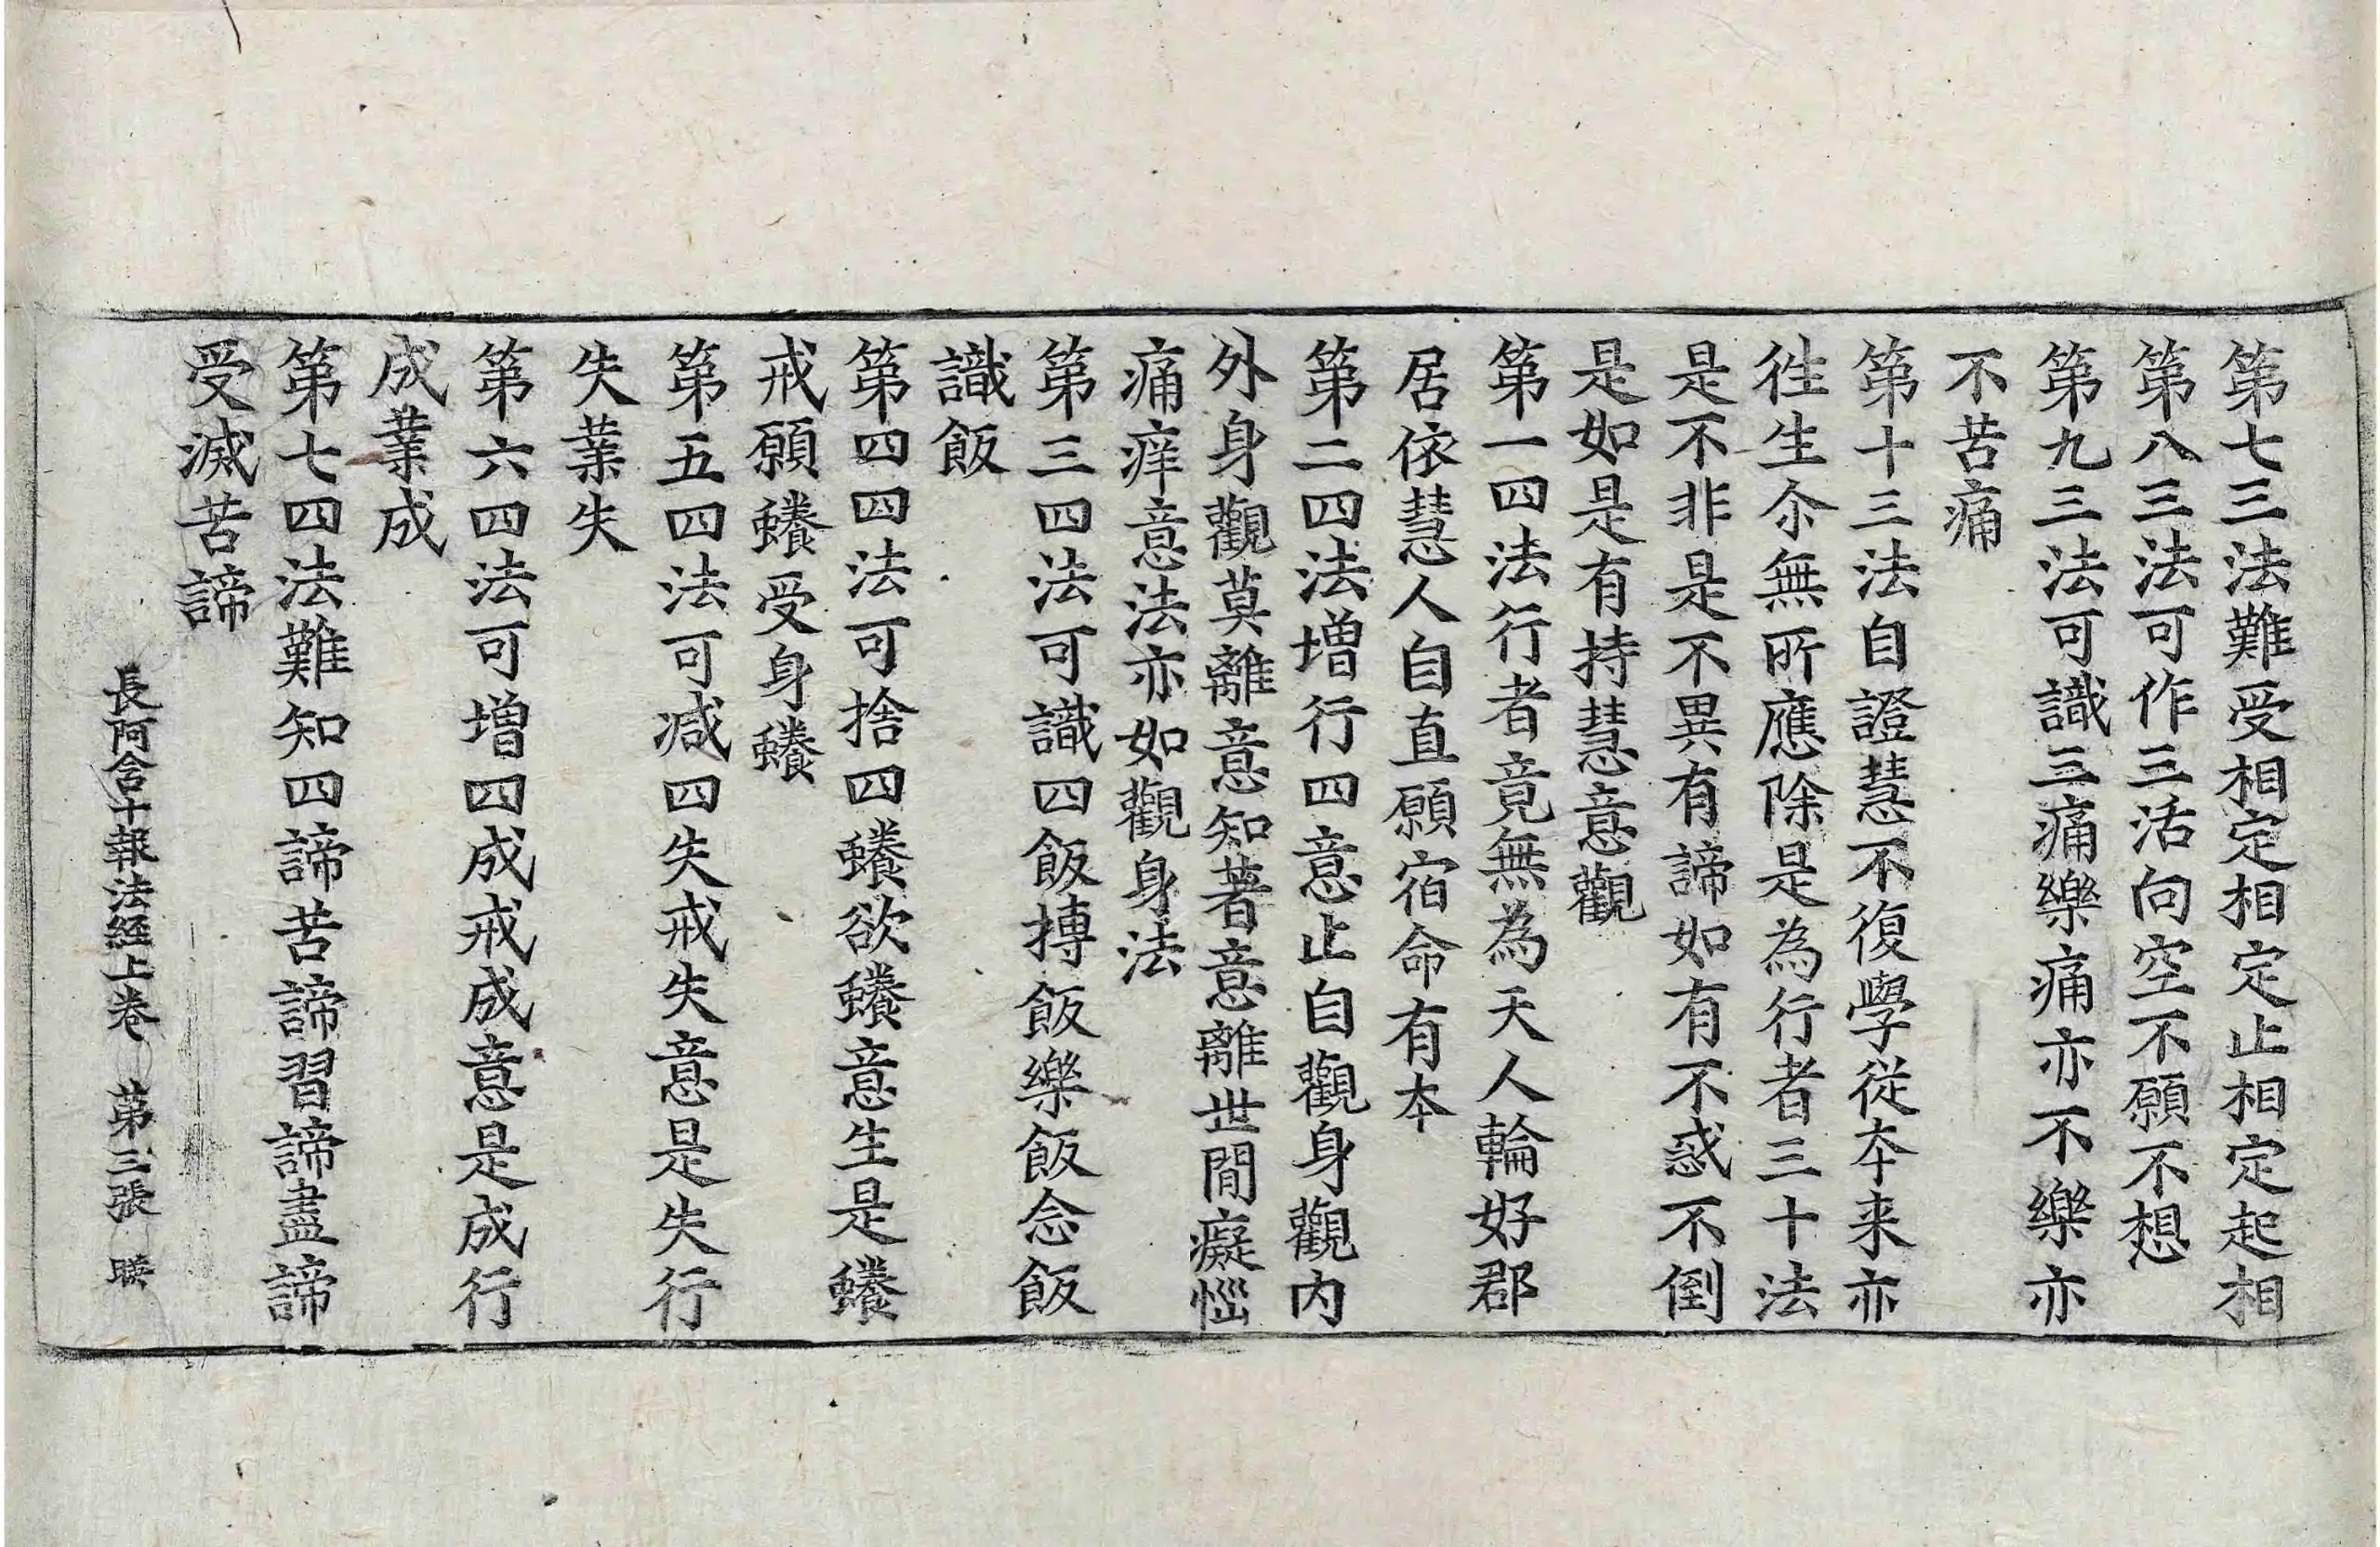 第七三法難受相定相定止相定起相
第八三法可作三活向空不願不想
第九三法可識三痛樂痛亦不樂亦
不苦痛
第十三法自證慧不復學從夲来亦
徃生尒無所應除是為行者三十法
是不非是不異有諦如有不惑不倒
是如是有持慧意觀
第一四法行者竟無為天人輪好郡
居依慧人自直願宿命有夲
第二四法増行四意止自觀身觀内
外身觀莫離意知著意離世間癡惱
痛痒意法亦如觀身法
第三四法可識四飯摶飯樂飯念飯
識飯
第四四法可捨四䗸欲䗸意生是䗸
戒願䗸受身䗸
第五四法可减四失戒失意是失行
失業失
第六四法可増四成戒成意是成行
成業成
第七四法難知四諦苦諦習諦盡諦
受滅苦諦
長阿含十報法經上卷 第三張 映